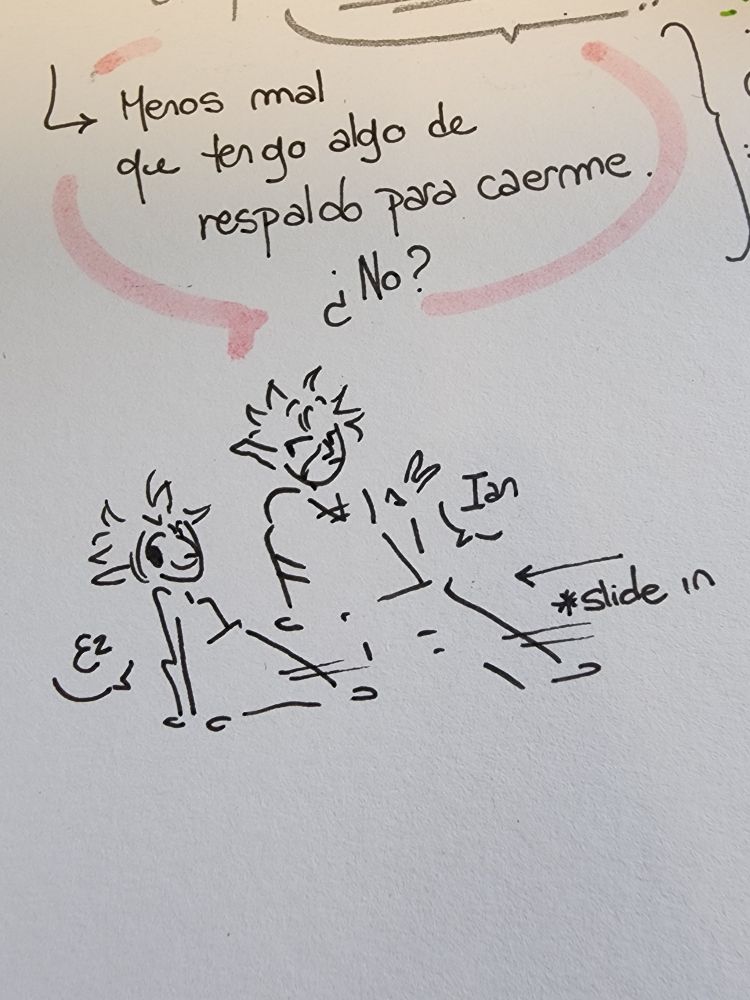 Menos mal
que tengo algo de
respaldo para caerme.
¿No?
Ian
*slide in
Ez